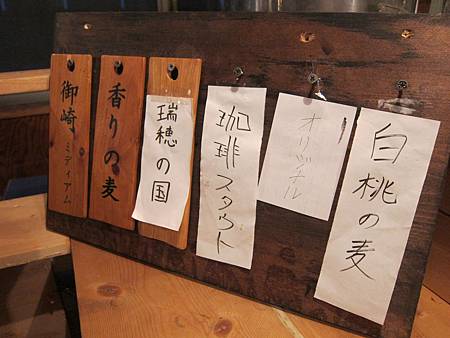 御崎
ミディアム
香りの麦
瑞穂の国
珈琲スタウト
オリジナル
白桃の麦